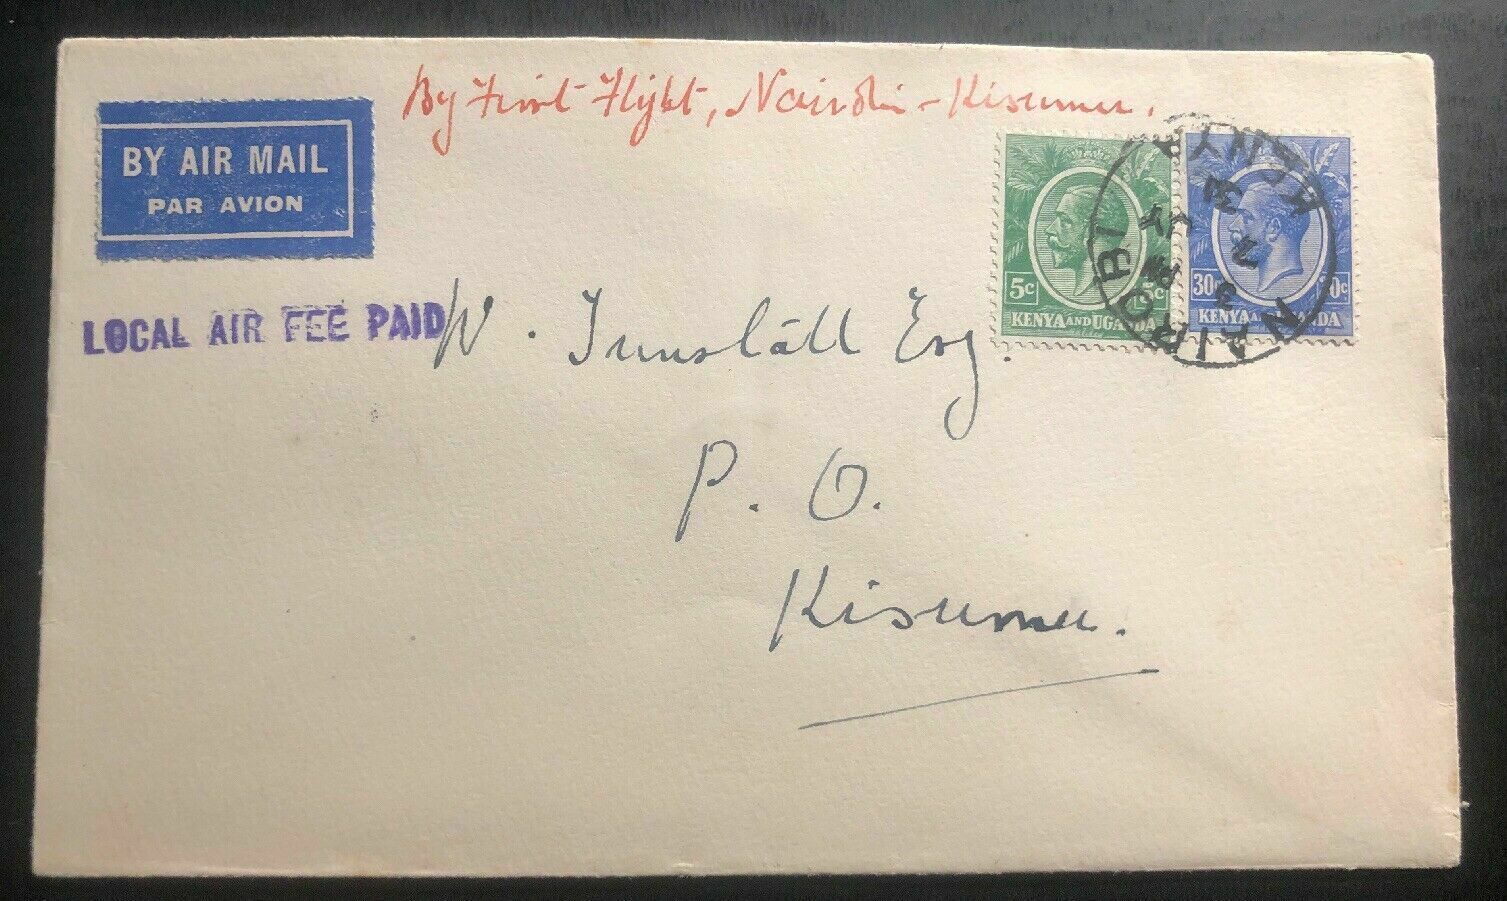 By First Flight, Nairobi - Kisumu.
BY AIR MAIL
PAR AVION
LOCAL AIR FEE PAID
5c 5c
KENYA AND UGANDA
30c 30c
KENYA AND UGANDA
NAIROBI
KENYA
3 PM
7
31
W. Tunstall Esq.
P. O.
Kisumu.